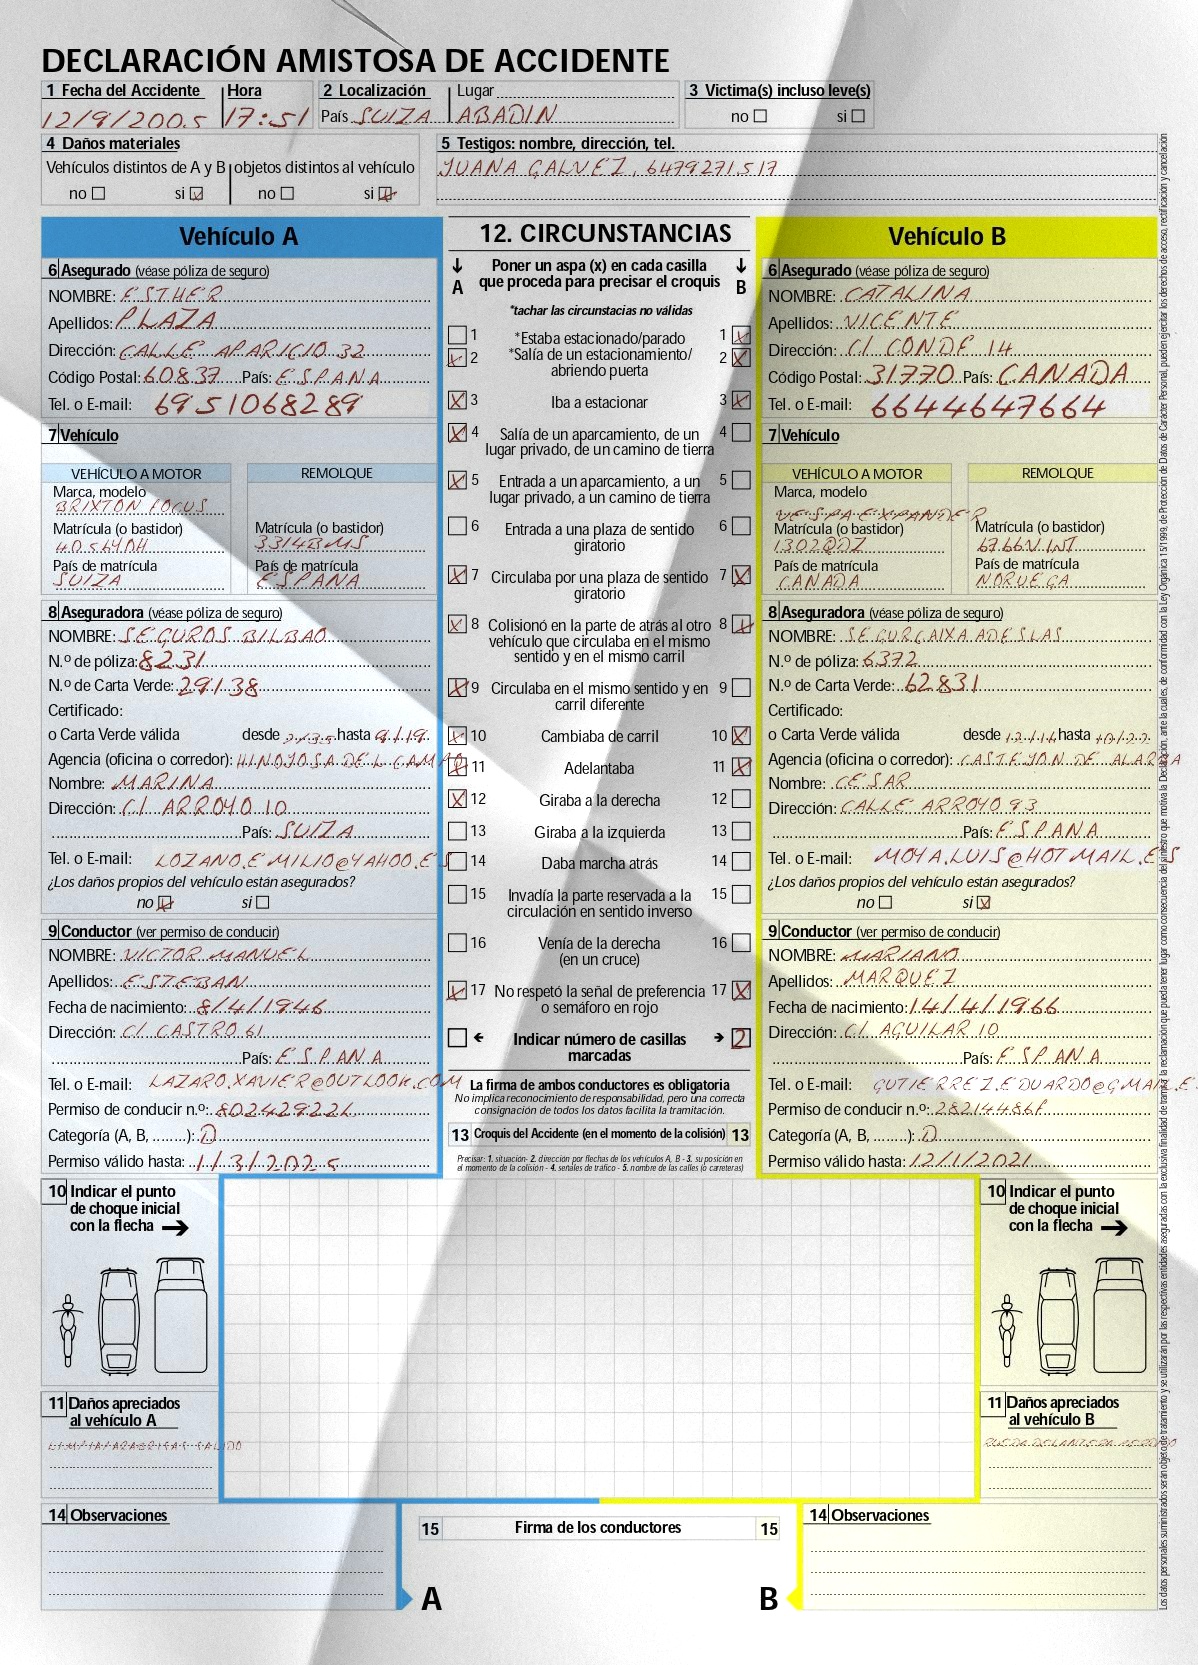 DECLARACIÓN AMISTOSA DE ACCIDENTE
1 Fecha del Accidente Hora 2 Localización Lugar 3 Victima(s) incluso leve(s)
12/9/2005 17:51 País SUIZA ABADIN no si
4 Daños materiales 5 Testigos: nombre, dirección, tel.
Vehículos distintos de A y B objetos distintos al vehículo JUANA GALVEZ, 6479271517
no si no si
Vehículo A
6 Asegurado (véase póliza de seguro)
NOMBRE: ESTHER
Apellidos: PLAZA
Dirección: CALLE APARICIO 32
Código Postal: 60837 País: ESPANA
Tel. o E-mail: 6951068289
7 Vehículo
VEHÍCULO A MOTOR REMOLQUE
Marca, modelo
BRIXTON FOCUS
Matrícula (o bastidor) Matrícula (o bastidor)
4056YDH 3314BMS
País de matrícula País de matrícula
SUIZA ESPANA
8 Aseguradora (véase póliza de seguro)
NOMBRE: SEGUROS BILBAO
N.º de póliza: 8231
N.º de Carta Verde: 29138
Certificado:
o Carta Verde válida desde hasta 9/1/19
Agencia (oficina o corredor): HINOJOSA DEL CAMPO
Nombre: MARINA
Dirección: C/ ARROYO 10
País: SUIZA
Tel. o E-mail: LOZANO.EMILIO@YAHOO.ES
¿Los daños propios del vehículo están asegurados?
no si
9 Conductor (ver permiso de conducir)
NOMBRE: VICTOR MANUEL
Apellidos: ESTEBAN
Fecha de nacimiento: 8/4/1946
Dirección: C/ CASTRO 61
País: ESPANA
Tel. o E-mail: LAZARO.XAVIER@OUTLOOK.COM
Permiso de conducir n.º: 802429226
Categoría (A, B, ........): D
Permiso válido hasta: 1/3/2025
10 Indicar el punto
de choque inicial
con la flecha
11 Daños apreciados
al vehículo A
LIMPIAPARABRISAS SALIDO
14 Observaciones
12. CIRCUNSTANCIAS
A Poner un aspa (x) en cada casilla B
que proceda para precisar el croquis
*tachar las circunstacias no válidas
1 *Estaba estacionado/parado 1
2 *Salía de un estacionamiento/ 2
abriendo puerta
3 Iba a estacionar 3
4 Salía de un aparcamiento, de un 4
lugar privado, de un camino de tierra
5 Entrada a un aparcamiento, a un 5
lugar privado, a un camino de tierra
6 Entrada a una plaza de sentido 6
giratorio
7 Circulaba por una plaza de sentido 7
giratorio
8 Colisionó en la parte de atrás al otro 8
vehículo que circulaba en el mismo
sentido y en el mismo carril
9 Circulaba en el mismo sentido y en 9
carril diferente
10 Cambiaba de carril 10
11 Adelantaba 11
12 Giraba a la derecha 12
13 Giraba a la izquierda 13
14 Daba marcha atrás 14
15 Invadía la parte reservada a la 15
circulación en sentido inverso
16 Venía de la derecha 16
(en un cruce)
17 No respetó la señal de preferencia 17
o semáforo en rojo
Indicar número de casillas 2
marcadas
La firma de ambos conductores es obligatoria
No implica reconocimiento de responsabilidad, pero una correcta
consignación de todos los datos facilita la tramitación.
13 Croquis del Accidente (en el momento de la colisión) 13
Precisar: 1. situación- 2. dirección por flechas de los vehículos A, B - 3. su posición en
el momento de la colisión - 4. señales de tráfico - 5. nombre de las calles (o carreteras)
15 Firma de los conductores 15
A B
Vehículo B
6 Asegurado (véase póliza de seguro)
NOMBRE: CATALINA
Apellidos: VICENTE
Dirección: C/ CONDE 14
Código Postal: 31770 País: CANADA
Tel. o E-mail: 6644647664
7 Vehículo
VEHÍCULO A MOTOR REMOLQUE
Marca, modelo
VESPA EXPANDER
Matrícula (o bastidor) Matrícula (o bastidor)
1302QDZ 6766VWT
País de matrícula País de matrícula
CANADA NORUEGA
8 Aseguradora (véase póliza de seguro)
NOMBRE: SEGURCAIXA ADESLAS
N.º de póliza: 6372
N.º de Carta Verde: 62831
Certificado:
o Carta Verde válida desde 12/1/14 hasta 10/2/22
Agencia (oficina o corredor): CASTEJON DE ALARBA
Nombre: CESAR
Dirección: CALLE ARROYO 93
País: ESPANA
Tel. o E-mail: MOYA.LUIS@HOTMAIL.ES
¿Los daños propios del vehículo están asegurados?
no si
9 Conductor (ver permiso de conducir)
NOMBRE: MARIANO
Apellidos: MARQUEZ
Fecha de nacimiento: 14/4/1966
Dirección: C/ AGUILAR 10
País: ESPANA
Tel. o E-mail: GUTIERREZ.EDUARDO@GMAIL.ES
Permiso de conducir n.º: 28214486F
Categoría (A, B, ........): D
Permiso válido hasta: 12/1/2021
10 Indicar el punto
de choque inicial
con la flecha
11 Daños apreciados
al vehículo B
RUEDA DELANTERA
14 Observaciones